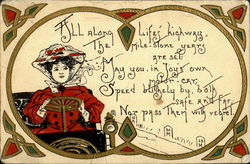 All along Life's highway,
The mile-stone years
are set
May you in Joy's own
motor-car,
Speed blithely by, both
safe and far,
Nor pass them with regret.